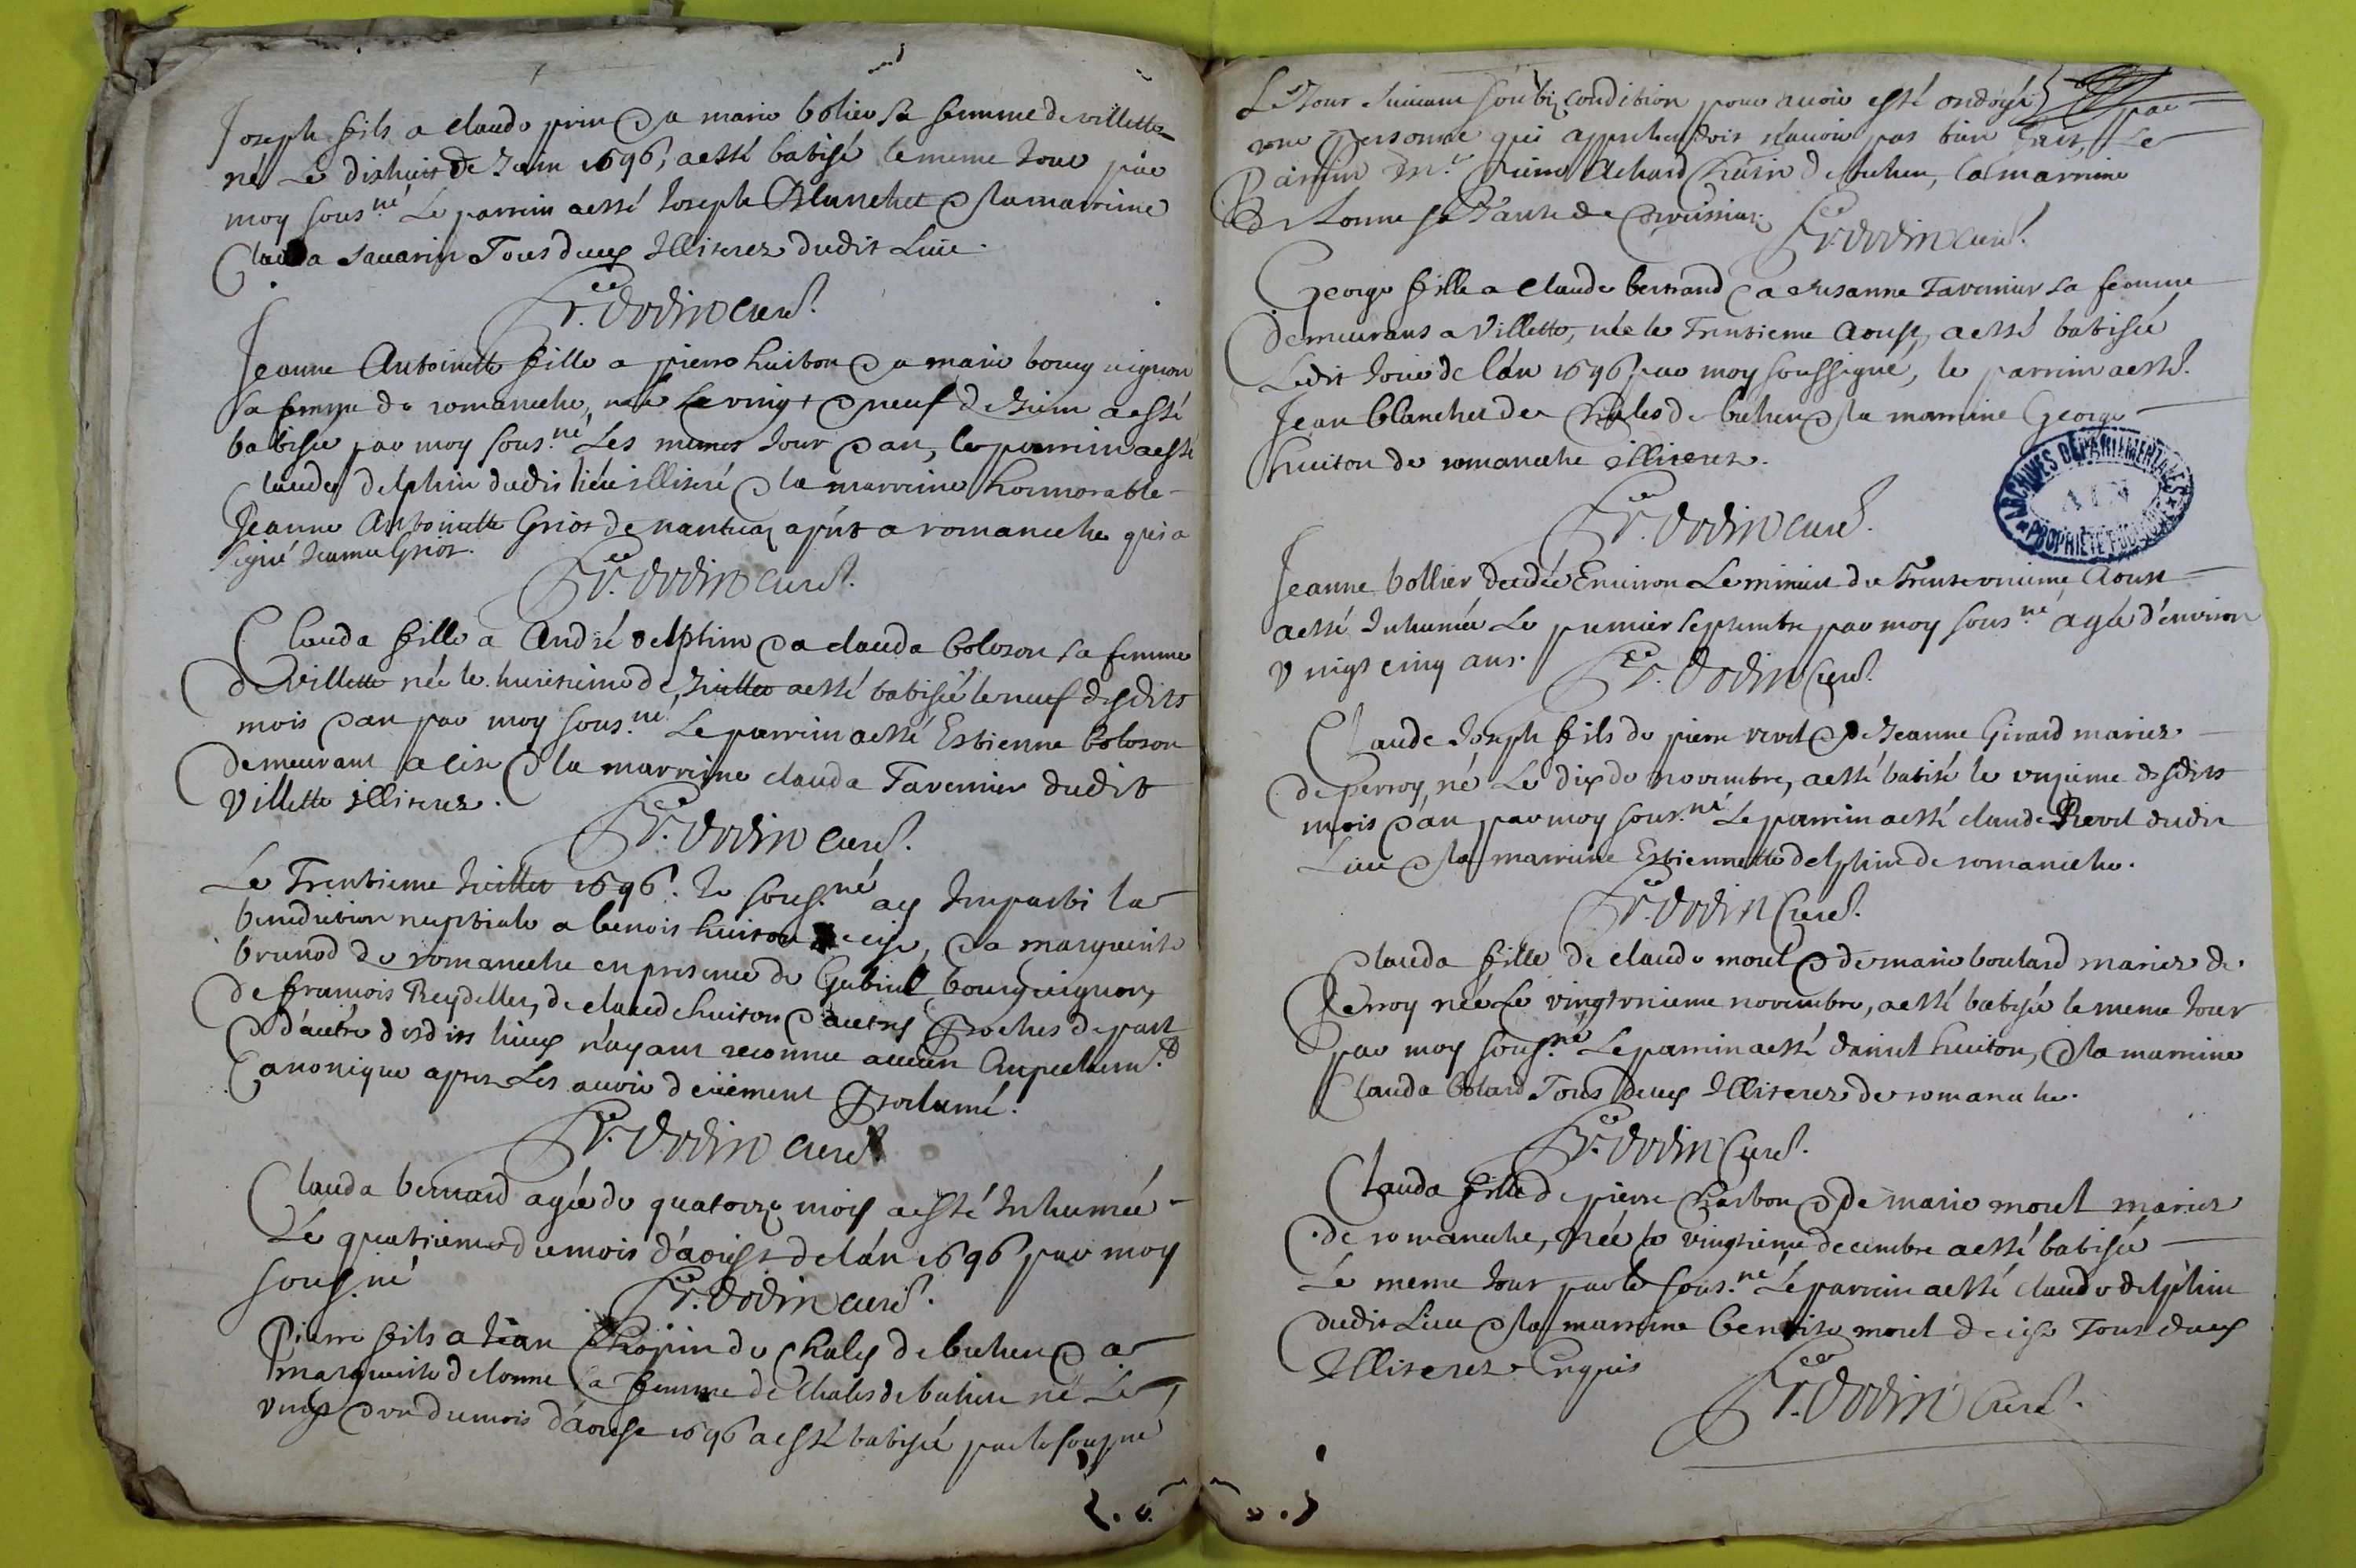 Joseph fils a claude prin & a marie bolier sa femme de villette
né Le dixhuit de Juin 1696, a esté batisé le meme Jour par
moy sous.né Le parrain a esté Joseph Blanchet & la marraine
Clauda Savarin Tous deux Illiterez dudit Lieu.
Fr. Dodin curé.
Jeanne Antoinette fille a pierre huiton & a marie bourguignon
sa femme de romaneche, née Le vingt & neuf de Juin a esté
batisée par moy sous.né Les memes Jour & an, le parrain a esté
claude delphin dudit lieu illiteré & la marraine honnorable
Jeanne Antoinette Griot de nantua apñt a romaneche qui a
signé Jeanne Griot.
Fr. Dodin curé.
Clauda fille a André delphin & a clauda boloson sa femme
de villette née le huitieme de Juillet a esté batisée le neuf desdits
mois & an par moy sous.né Le parrain a esté Estienne boloson
demeurant a cise & la marraine clauda Tavernier dudit
Villette illiterez.
Fr. Dodin curé.
Le Trentieme Juillet 1696. Je sous.né ay Imparti la
benediction nuptiale a benoit huiton de cise, & a marguerite
brunod de romaneche en presence de Gabriel bourguignon,
de francois Reydellet, de claude huiton & autres proches de part
& d'autre desdits lieux n'ayant reconnu aucun Empechem.t
Canonique apres Les avoir deüement proclamé.
Fr. Dodin curé
Clauda bernard agée de quatorze mois a esté Inhumée
Le quatrieme du mois d'aoust de l'an 1696 par moy
sous.né
Fr. Dodin curé.
Pierre fils a Jean Chopin du Chales de buhen & a
marguerite delonne sa femme de Chales de buhen né Le
vingt & un du mois d'aoust 1696 a esté batisé par le sousné
Le Jour suivant soubz condition pour avoir esté ondoyé par
une personne qui apprehendoit n'avoir pas bien fait, Le
Parrain Mr. Pierre Achard de buhen, la marraine
de Lonne sa Tante de
Fr. Dodin curé.
George fille a Claude bertrand & a Susanne Tavernier sa femme
demeurans a Villette, née le Trentieme Aoust, a esté batisée
Ledit Jour de l'an 1696 par moy soussigné, le parrain a esté
Jean blanchet de Chales de buhen & la marraine George
huiton de romaneche illiterez.
Fr. Dodin curé.
ARCHIVES DÉPARTEMENTALES
AIN
PROPRIÉTÉ PUBLIQUE
Jeanne bollier decedée Environ Le minuit du Trenteunieme Aoust
a esté Inhumée Le premier septembre par moy sous.né agée d'environ
vingt cinq ans.
Fr. Dodin Curé.
Claude Joseph fils de pierre revel & de Jeanne Girard mariez
de perroy, né Le dix de novembre, a esté batisé le unzieme desdits
mois & an par moy sous.né Le parrain a esté claude Revel dudit
Lieu & la marraine Estiennette delphin de romaneche.
Fr. Dodin Curé.
Clauda fille de claude morel & de marie boulard mariez de
Perroy née Le vingtunieme novembre, a esté batisée le meme Jour
par moy sous.né Le parrain a esté daniel huiton, & la marraine
Clauda bolard Tous deux Illiterez de romaneche.
Fr. Dodin Curé.
Clauda fille de pierre Charbon & de marie morel mariez
de romaneche, née le vingtieme decembre a esté batisée
Le meme Jour par le sous.né Le parrain a esté claude delphin
dudit Lieu & la marraine benoite morel de cise Tous deux
Illiterez Enquis
Fr. Dodin Curé.